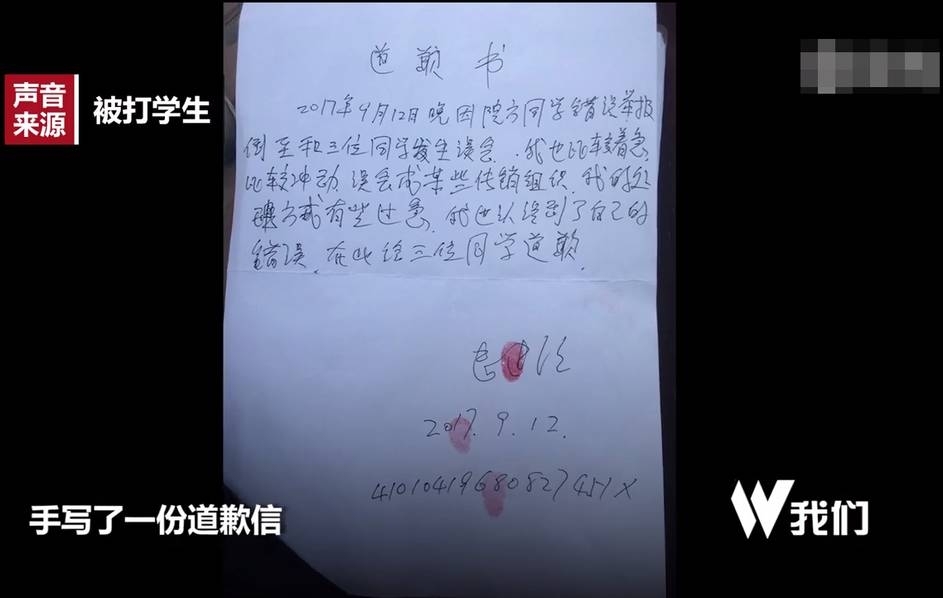 声音
来源
被打学生
道歉书
2017年9月12日晚因院方同学错误举报
倒至和三位同学发生误会.我也比较着急,
比较冲动,误会成某些传销组织.我的处
理方式有些过急,我也认识到了自己的
错误.在此给三位同学道歉.
2017.9.12.
手写了一份道歉信
W我们